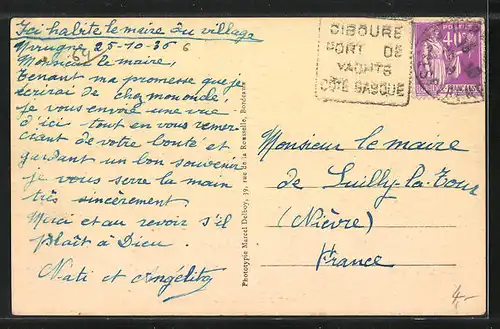 Ici habite le maire du village
Urrugne 25-10-36
64
Monsieur le maire,
Tenant ma promesse que je
écrirai de chez mon ondé,
je vous envoie une vue
d'ici tout en vous remer-
ciant de votre bonté et
gardant un bon souvenir
je vous serre la main
très sincèrement.
Merci et au revoir s'il
plaît à Dieu.
Nati et Angélita
Phototypie Marcel Delboy, 39, rue de la Rousselle, Bordeaux
CIBOURE
PORT DE
YACHTS
CÔTE BASQUE
POSTES
40c
Monsieur le maire
de Suilly-la-Tour
(Nièvre)
France
4-